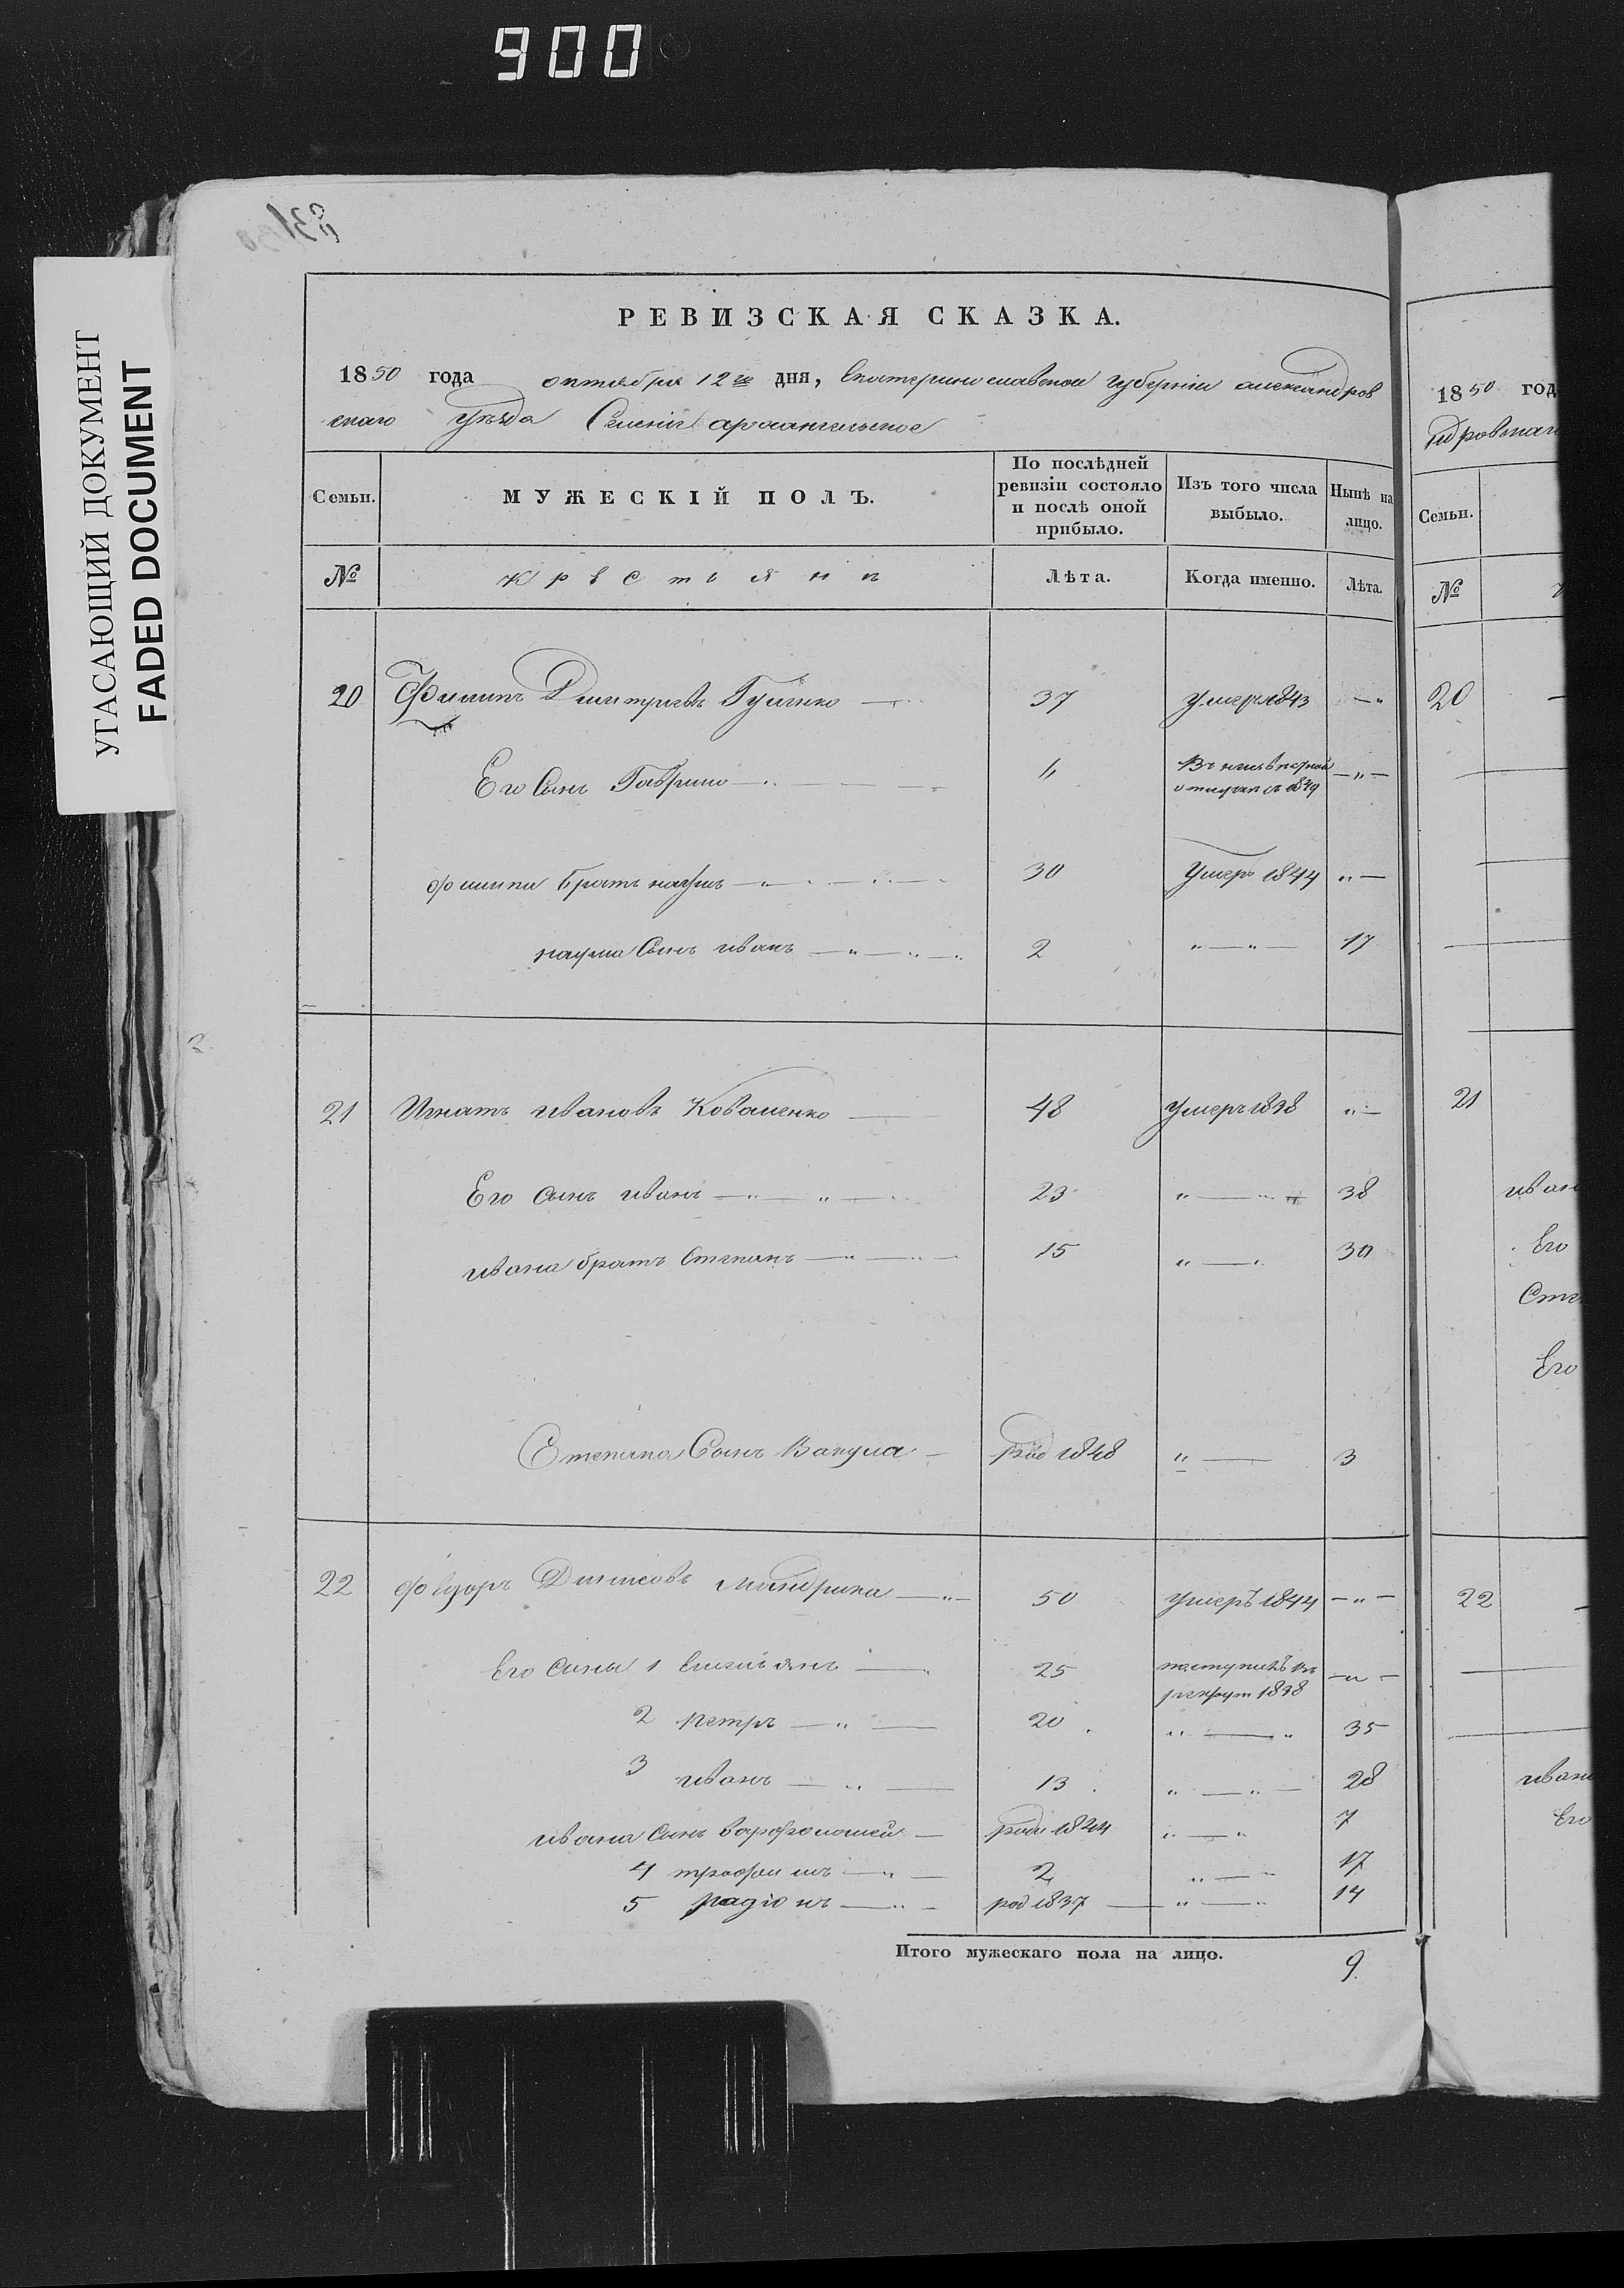 900
УГАСАЮЩИЙ ДОКУМЕНТ
FADED DOCUMENT
РЕВИЗСКАЯ СКАЗКА.
1850 года октября 12го дня, Екатеринославской губернiи александров
скаго уѣзда Селенiе архангельское
Семьи. МУЖЕСКІЙ ПОЛЪ. По послѣдней ревизіи состояло и послѣ оной прибыло. Изъ того числа выбыло. Нынѣ на лицо.
№ Крестьяни Лѣта. Когда именно. Лѣта.
20 Филипъ Дмитриевъ 37 умеръ 1843 — „
Его Сынъ Гаврило — „ 1849 — „ —
филипа братъ наумъ — „ 30 Умеръ 1844 „ —
наума Сынъ иванъ — „ — „ — „ 2 „ — „ — 17
21 Игнатъ ивановъ Коваленко — 48 Умеръ 1838 „ —
Его сынъ иванъ — „ — „ — 23 „ — „ 38
ивана братъ Степанъ — „ — „ — 15 „ — „ 30
Степана Сынъ Вакула — род 1848 „ — 3
22 федоръ Денисовъ Мандрика — „ — 50 умеръ 1844 — „ —
Его Сины 1 Емельянъ — „ 25 поступилъ въ рекрут 1838 — „ —
2 петръ — „ — 20 „ — „ 35
3 иванъ — „ — 13 „ — „ — 28
ивана Сынъ варфоломей — роди 1844 „ — „ 7
4 трофимъ — „ — 2 „ — „ 17
5 радіонъ — „ — род 1837 — „ — „ 14
Итого мужескаго пола на лицо. 9.
1850 год
Семьи.
№
20
21
иван
Его
Сте
Его
22
иван
Его